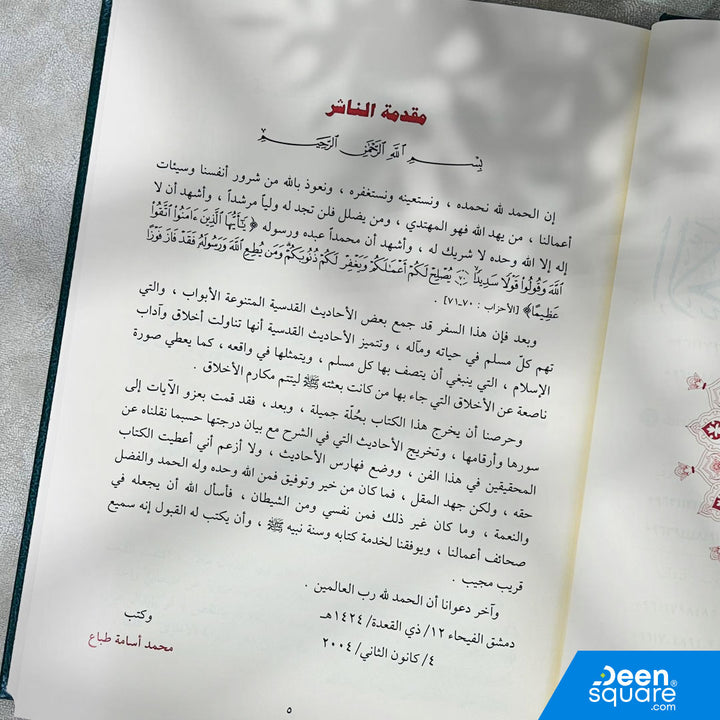 مقدمة الناشر
بِسْمِ اللَّهِ الرَّحْمَنِ الرَّحِيمِ
إن الحمد لله نحمده ، ونستعينه ونستغفره ، ونعوذ بالله من شرور أنفسنا وسيئات
أعمالنا ، من يهد الله فهو المهتدي ، ومن يضلل فلن تجد له ولياً مرشداً ، وأشهد أن لا
إله إلا الله وحده لا شريك له ، وأشهد أن محمداً عبده ورسوله ﴿ يَٰٓأَيُّهَا ٱلَّذِينَ ءَامَنُوا۟ ٱتَّقُوا۟
ٱللَّهَ وَقُولُوا۟ قَوْلًا سَدِيدًا ۝٧٠ يُصْلِحْ لَكُمْ أَعْمَٰلَكُمْ وَيَغْفِرْ لَكُمْ ذُنُوبَكُمْ وَمَن يُطِعِ ٱللَّهَ وَرَسُولَهُۥ فَقَدْ فَازَ فَوْزًا
عَظِيمًا﴾ [الأحزاب : ٧٠-٧١] .
وبعد فإن هذا السفر قد جمع بعض الأحاديث القدسية المتنوعة الأبواب ، والتي
تهم كلّ مسلم في حياته ومآله ، وتتميز الأحاديث القدسية أنها تناولت أخلاق وآداب
الإسلام ، التي ينبغي أن يتصف بها كل مسلم ، ويتمثلها في واقعه ، كما يعطي صورة
ناصعة عن الأخلاق التي جاء بها من كانت بعثته ﷺ ليتمم مكارم الأخلاق .
وحرصنا أن يخرج هذا الكتاب بحُلّة جميلة ، وبعد ، فقد قمت بعزو الآيات إلى
سورها وأرقامها ، وتخريج الأحاديث التي في الشرح مع بيان درجتها حسبما نقلناه عن
المحققين في هذا الفن ، ووضع فهارس الأحاديث ، ولا أزعم أني أعطيت الكتاب
حقه ، ولكن جهد المقل ، فما كان من خير وتوفيق فمن الله وحده وله الحمد والفضل
والنعمة ، وما كان غير ذلك فمن نفسي ومن الشيطان ، فأسأل الله أن يجعله في
صحائف أعمالنا ، ويوفقنا لخدمة كتابه وسنة نبيه ﷺ ، وأن يكتب له القبول إنه سميع
قريب مجيب .
وآخر دعوانا أن الحمد لله رب العالمين .
دمشق الفيحاء ١٢/ ذي القعدة/ ١٤٢٤هـ
٤/ كانون الثاني/ ٢٠٠٤
وكتب
محمد أسامة طباع
٥
Deen
square®
.com